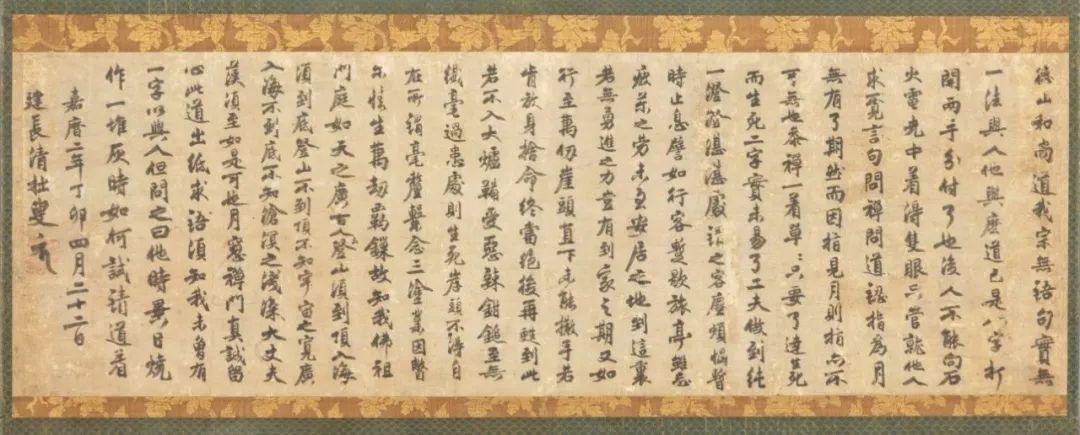 德山和尚道我宗無語句實無
一法與人他與麽道已是八字打
開兩手分付了也後人不能向石
火電光中着得隻眼只管就他人
求覓言句問禪問道認指為月
無有了期然而因指見月則指尚不
可無也參禪一着單單只要了達生死
而生死二字實未易了工夫做到純
一澄澄湛湛處謂之客塵煩惱暫
時止息譬如行客暫歇旅亭雖忘
疲苶之勞未至安居之地到這裏
若無勇進之力豈有到家之期又如
行至萬仞崖頭直下未能撒手若
肯放身捨命終當絕後再甦到此
若不入大爐鞴受惡辣鉗鎚至無
纖毫過患處則生死岸頭不得自
在所謂毫釐繫念三塗業因瞥
尒情生萬劫羈鏁故知我佛祖
門庭如天之廣古人登山須到頂入海
須到底登山不到頂不知宇宙之寬廣
入海不到底不知滄溟之淺深大丈夫
漢須至如是可也月窓禪門真誠留
心此道出紙求語須知我未曾有
一字以與人但問之曰他時異日燒
作一堆灰時如何試請道看
嘉曆二年丁卯四月二十二日
建長清拙叟